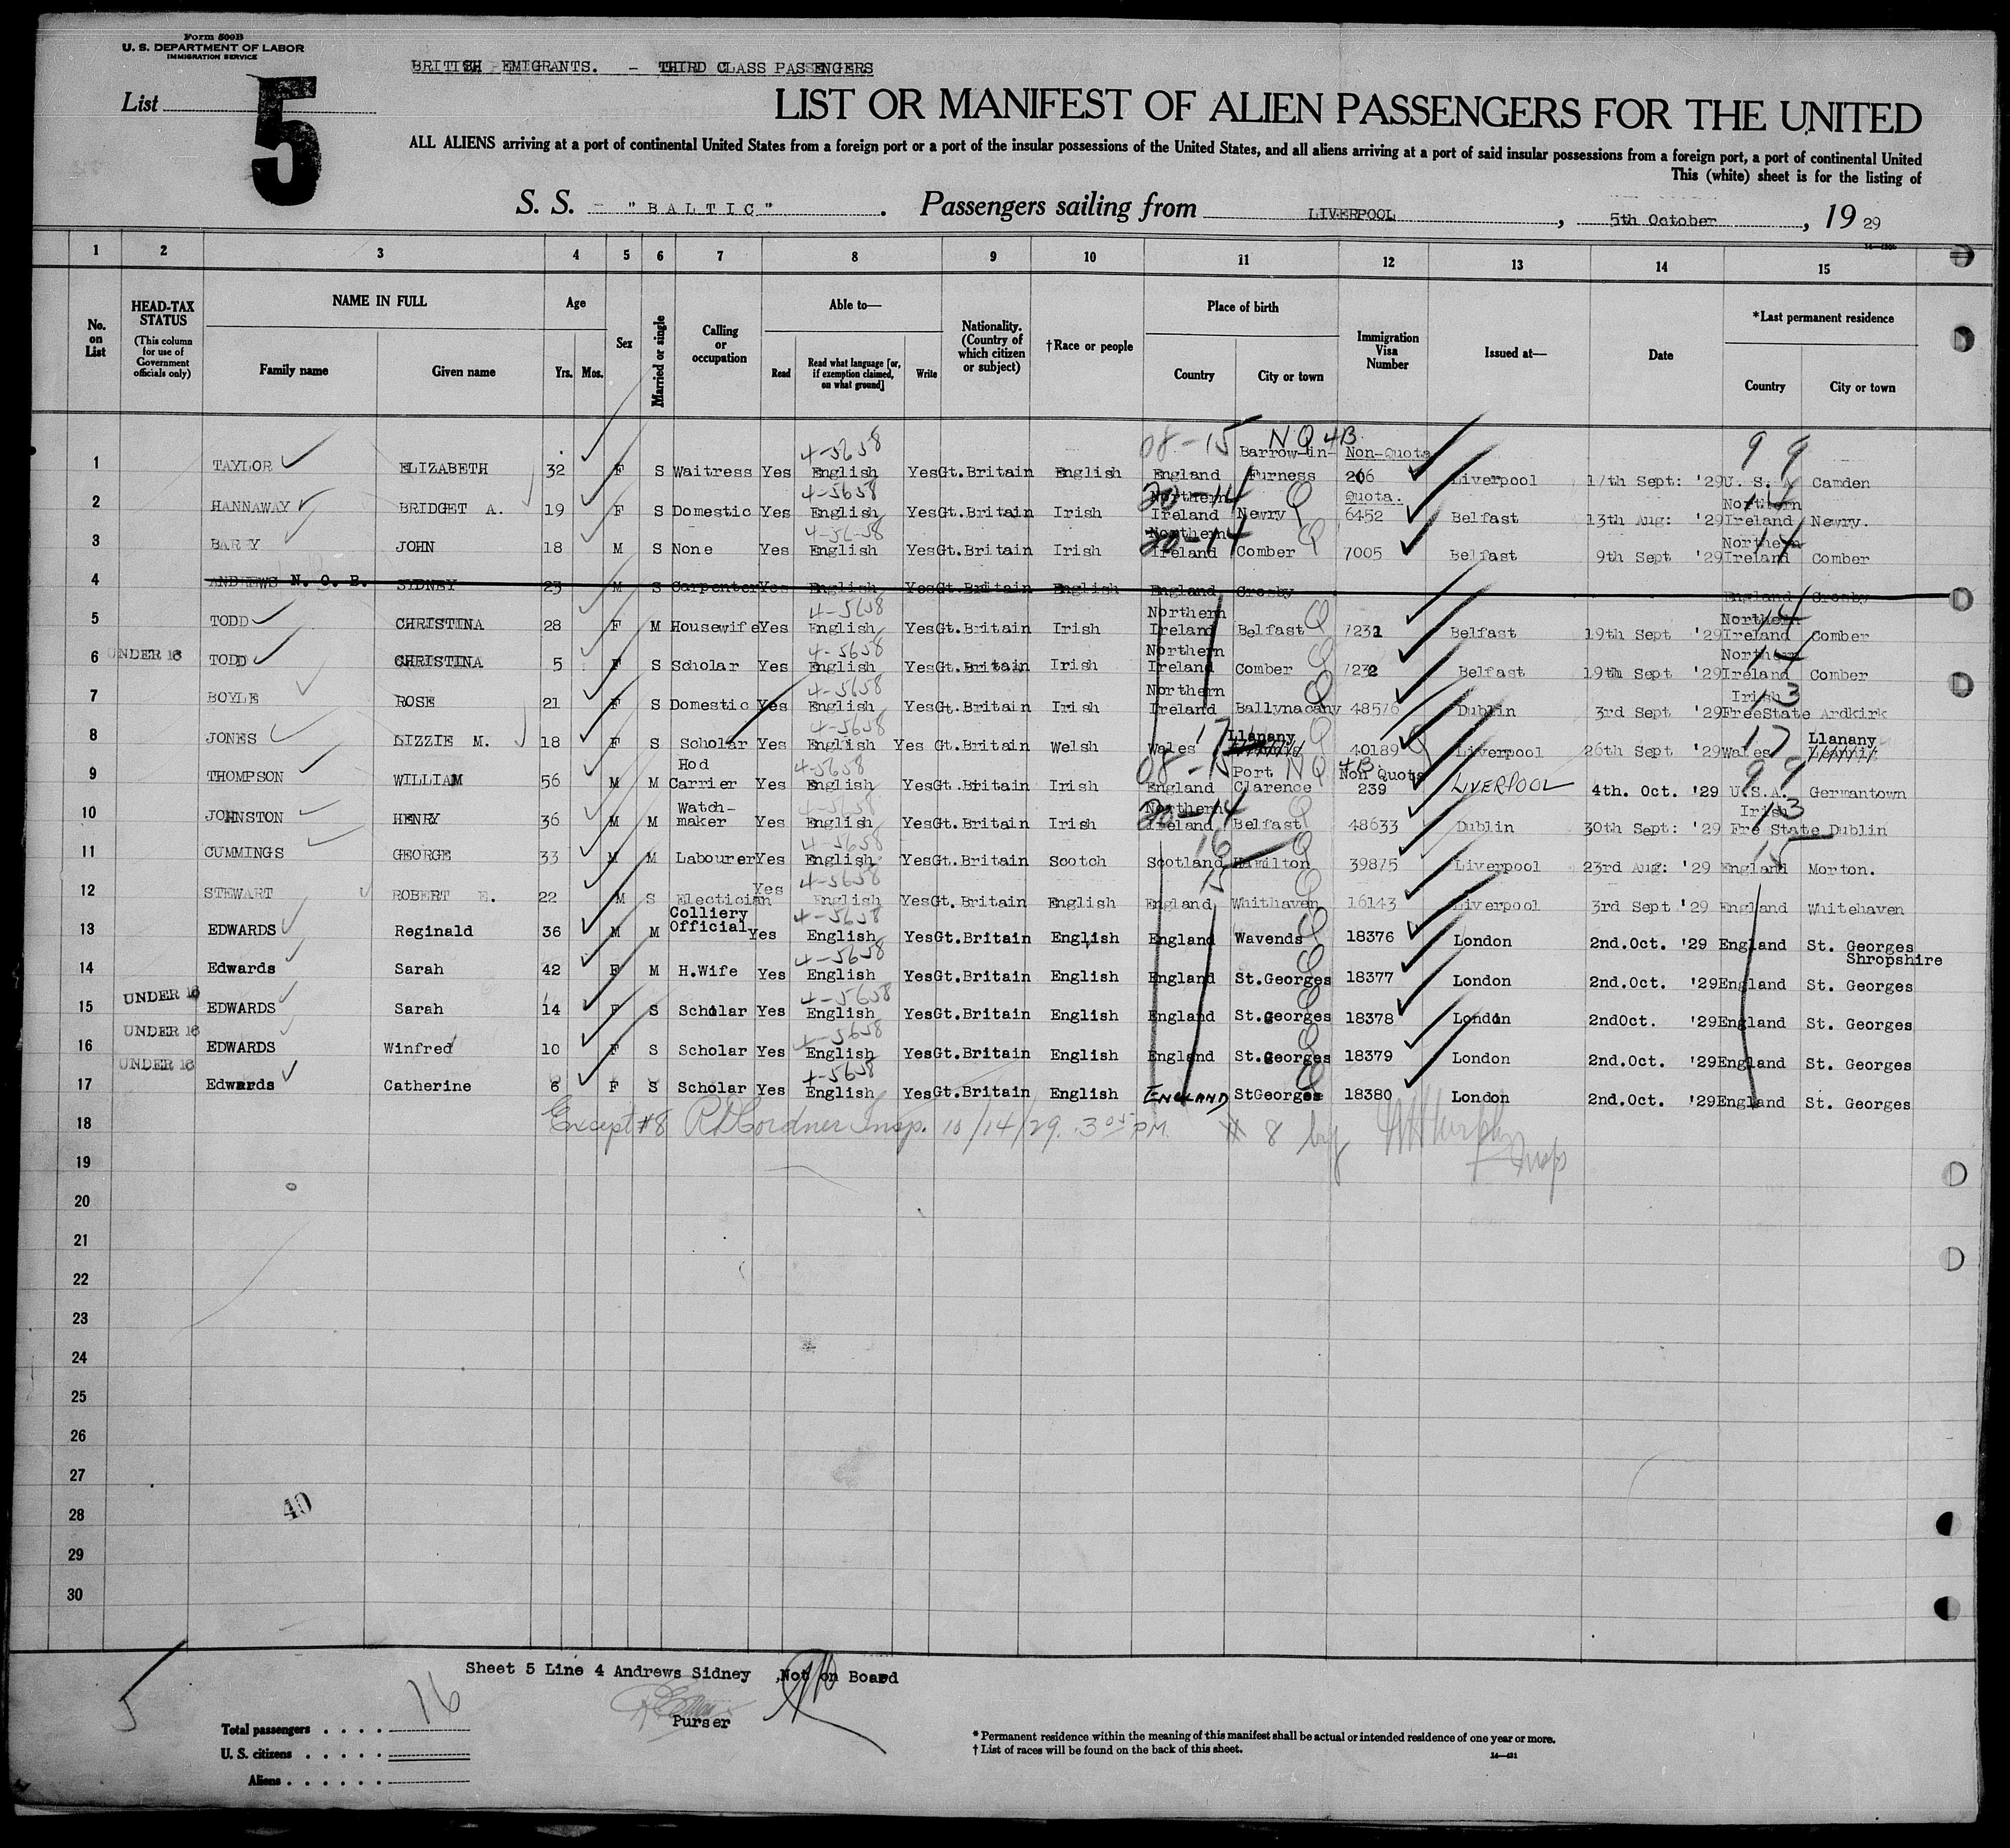 Form 500B
U. S. DEPARTMENT OF LABOR
IMMIGRATION SERVICE
BRITISH EMIGRANTS. - THIRD CLASS PASSENGERS
List 5
LIST OR MANIFEST OF ALIEN PASSENGERS FOR THE UNITED
ALL ALIENS arriving at a port of continental United States from a foreign port or a port of the insular possessions of the United States, and all aliens arriving at a port of said insular possessions from a foreign port, a port of continental United
This (white) sheet is for the listing of
S. S. - "BALTIC" . Passengers sailing from LIVERPOOL , 5th October , 19 29
1 2 3 4 5 6 7 8 9 10 11 12 13 14 15
No. on List HEAD-TAX STATUS (This column for use of Government officials only) NAME IN FULL Family name Given name Age Yrs. Mos. Sex Married or single Calling or occupation Able to— Read Read what language [or, if exemption claimed, on what ground] Write Nationality. (Country of which citizen or subject) †Race or people Place of birth Country City or town Immigration Visa Number Issued at— Date *Last permanent residence Country City or town
1 TAYLOR ELIZABETH 32 F S Waitress Yes 4-5658 English Yes Gt.Britain English 08-15 England Barrow-in-Furness NQ 4B Non-Quota 206 Liverpool 17th Sept: '29 U. S. A 99 Camden
2 HANNAWAY BRIDGET A. 19 F S Domestic Yes 4-5658 English Yes Gt.Britain Irish 20-14 Northern Ireland Newry Q Quota. 6452 Belfast 13th Aug: '29 Northern Ireland 14 Newry.
3 BARRY JOHN 18 M S None Yes 4-5658 English Yes Gt.Britain Irish 20-14 Northern Ireland Comber Q 7005 Belfast 9th Sept '29 Northern Ireland 14 Comber
4 ANDREWS N. O. B. SYDNEY 23 M S Carpenter Yes English Yes Gt.Britain English England Crosby England Crosby
5 TODD CHRISTINA 28 F M Housewife Yes 4-5658 English Yes Gt.Britain Irish Northern Ireland Belfast Q 7231 Belfast 19th Sept '29 Northern Ireland 14 Comber
6 UNDER 16 TODD CHRISTINA 5 F S Scholar Yes 4-5658 English Yes Gt.Britain Irish Northern Ireland Comber Q 7232 Belfast 19th Sept '29 Northern Ireland 14 Comber
7 BOYLE ROSE 21 F S Domestic Yes 4-5658 English Yes Gt.Britain Irish Northern Ireland Ballynacany Q 48576 Dublin 3rd Sept '29 Irish FreeState 13 Ardkirk
8 JONES LIZZIE M. 18 F S Scholar Yes 4-5658 English Yes Gt.Britain Welsh Wales 17 Llanany Q 40189 Liverpool 26th Sept '29 Wales 17 Llanany
9 THOMPSON WILLIAM 56 M M Hod Carrier Yes 4-5658 English Yes Gt.Britain Irish 08-15 England Port Clarence NQ 4B Non Quota 239 LIVERPOOL 4th. Oct. '29 U.S.A. 99 Germantown
10 JOHNSTON HENRY 36 M M Watch-maker Yes 4-5658 English Yes Gt.Britain Irish 20-14 Northern Ireland Belfast Q 48633 Dublin 30th Sept: '29 Irish Fre State 13 Dublin
11 CUMMINGS GEORGE 33 M M Labourer Yes 4-5658 English Yes Gt.Britain Scotch 16 Scotland Hamilton Q 39875 Liverpool 23rd Aug: '29 England 15 Morton.
12 STEWART ROBERT E. 22 M S Electician Yes 4-5658 English Yes Gt.Britain English 15 England Whithaven Q 16143 Liverpool 3rd Sept '29 England Whitehaven
13 EDWARDS Reginald 36 M M Colliery Official Yes 4-5658 English Yes Gt.Britain English England Wavends Q 18376 London 2nd.Oct. '29 England St. Georges Shropshire
14 Edwards Sarah 42 F M H.Wife Yes 4-5658 English Yes Gt.Britain English England St.Georges Q 18377 London 2nd.Oct. '29 England St. Georges
15 UNDER 16 EDWARDS Sarah 14 F S Scholar Yes 4-5658 English Yes Gt.Britain English England St.Georges Q 18378 London 2ndOct. '29 England St. Georges
16 UNDER 16 EDWARDS Winfred 10 F S Scholar Yes 4-5658 English Yes Gt.Britain English England St.Georges Q 18379 London 2nd.Oct. '29 England St. Georges
17 UNDER 16 Edwards Catherine 6 F S Scholar Yes 4-5658 English Yes Gt.Britain English ENGLAND StGeorges Q 18380 London 2nd.Oct. '29 England St. Georges
18 Except #8 Insp. 10/14/29. 3 05 PM # 8 by Murphy Insp
19
20
21
22
23
24
25
26
27
28 40
29
30
Sheet 5 Line 4 Andrews Sidney ,Not on Board
Purser
5
Total passengers . . . . 16
U. S. citizens . . . . .
Aliens . . . . . .
* Permanent residence within the meaning of this manifest shall be actual or intended residence of one year or more.
† List of races will be found on the back of this sheet.
14—421